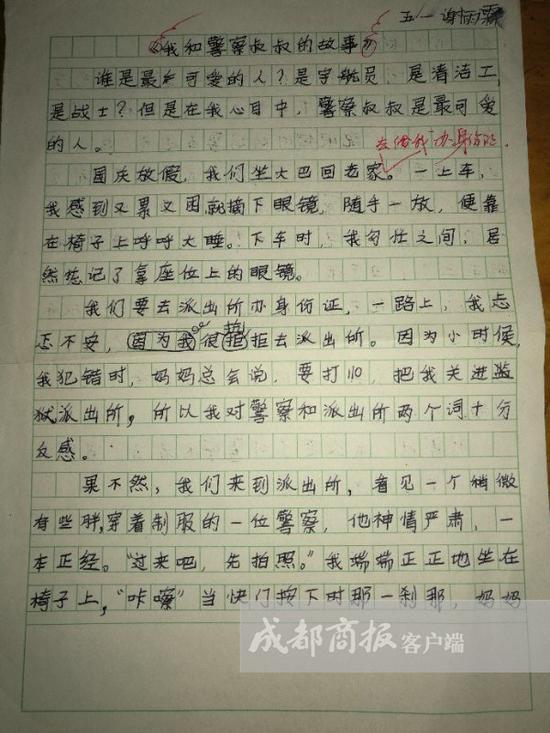 五一谢雨霖
《我和警察叔叔的故事》
谁是最可爱的人？是宇航员、是清洁工、
是战士？但是在我心目中，警察叔叔是最可爱
的人。
去给我办身份证.
国庆放假，我们坐大巴回老家。一上车，
我感到又累又困就摘下眼镜，随手一放，便靠
在椅子上呼呼大睡。下车时，我匆忙之间，居
然忘记了拿座位上的眼镜。
我们要去派出所办身份证，一路上，我忐
忑不安，因为我很抗拒去派出所。因为小时候，
我犯错时，妈妈总会说，要打110，把我关进监
狱派出所，所以我对警察和派出所两个词十分
反感。
果不然，我们来到派出所，看见一个稍微
有些胖，穿着制服的一位警察，他神情严肃，一
本正经。“过来吧，先拍照。”我端端正正地坐在
椅子上，“咔嚓”当快门按下时那一刹那，妈妈
成都商报客户端